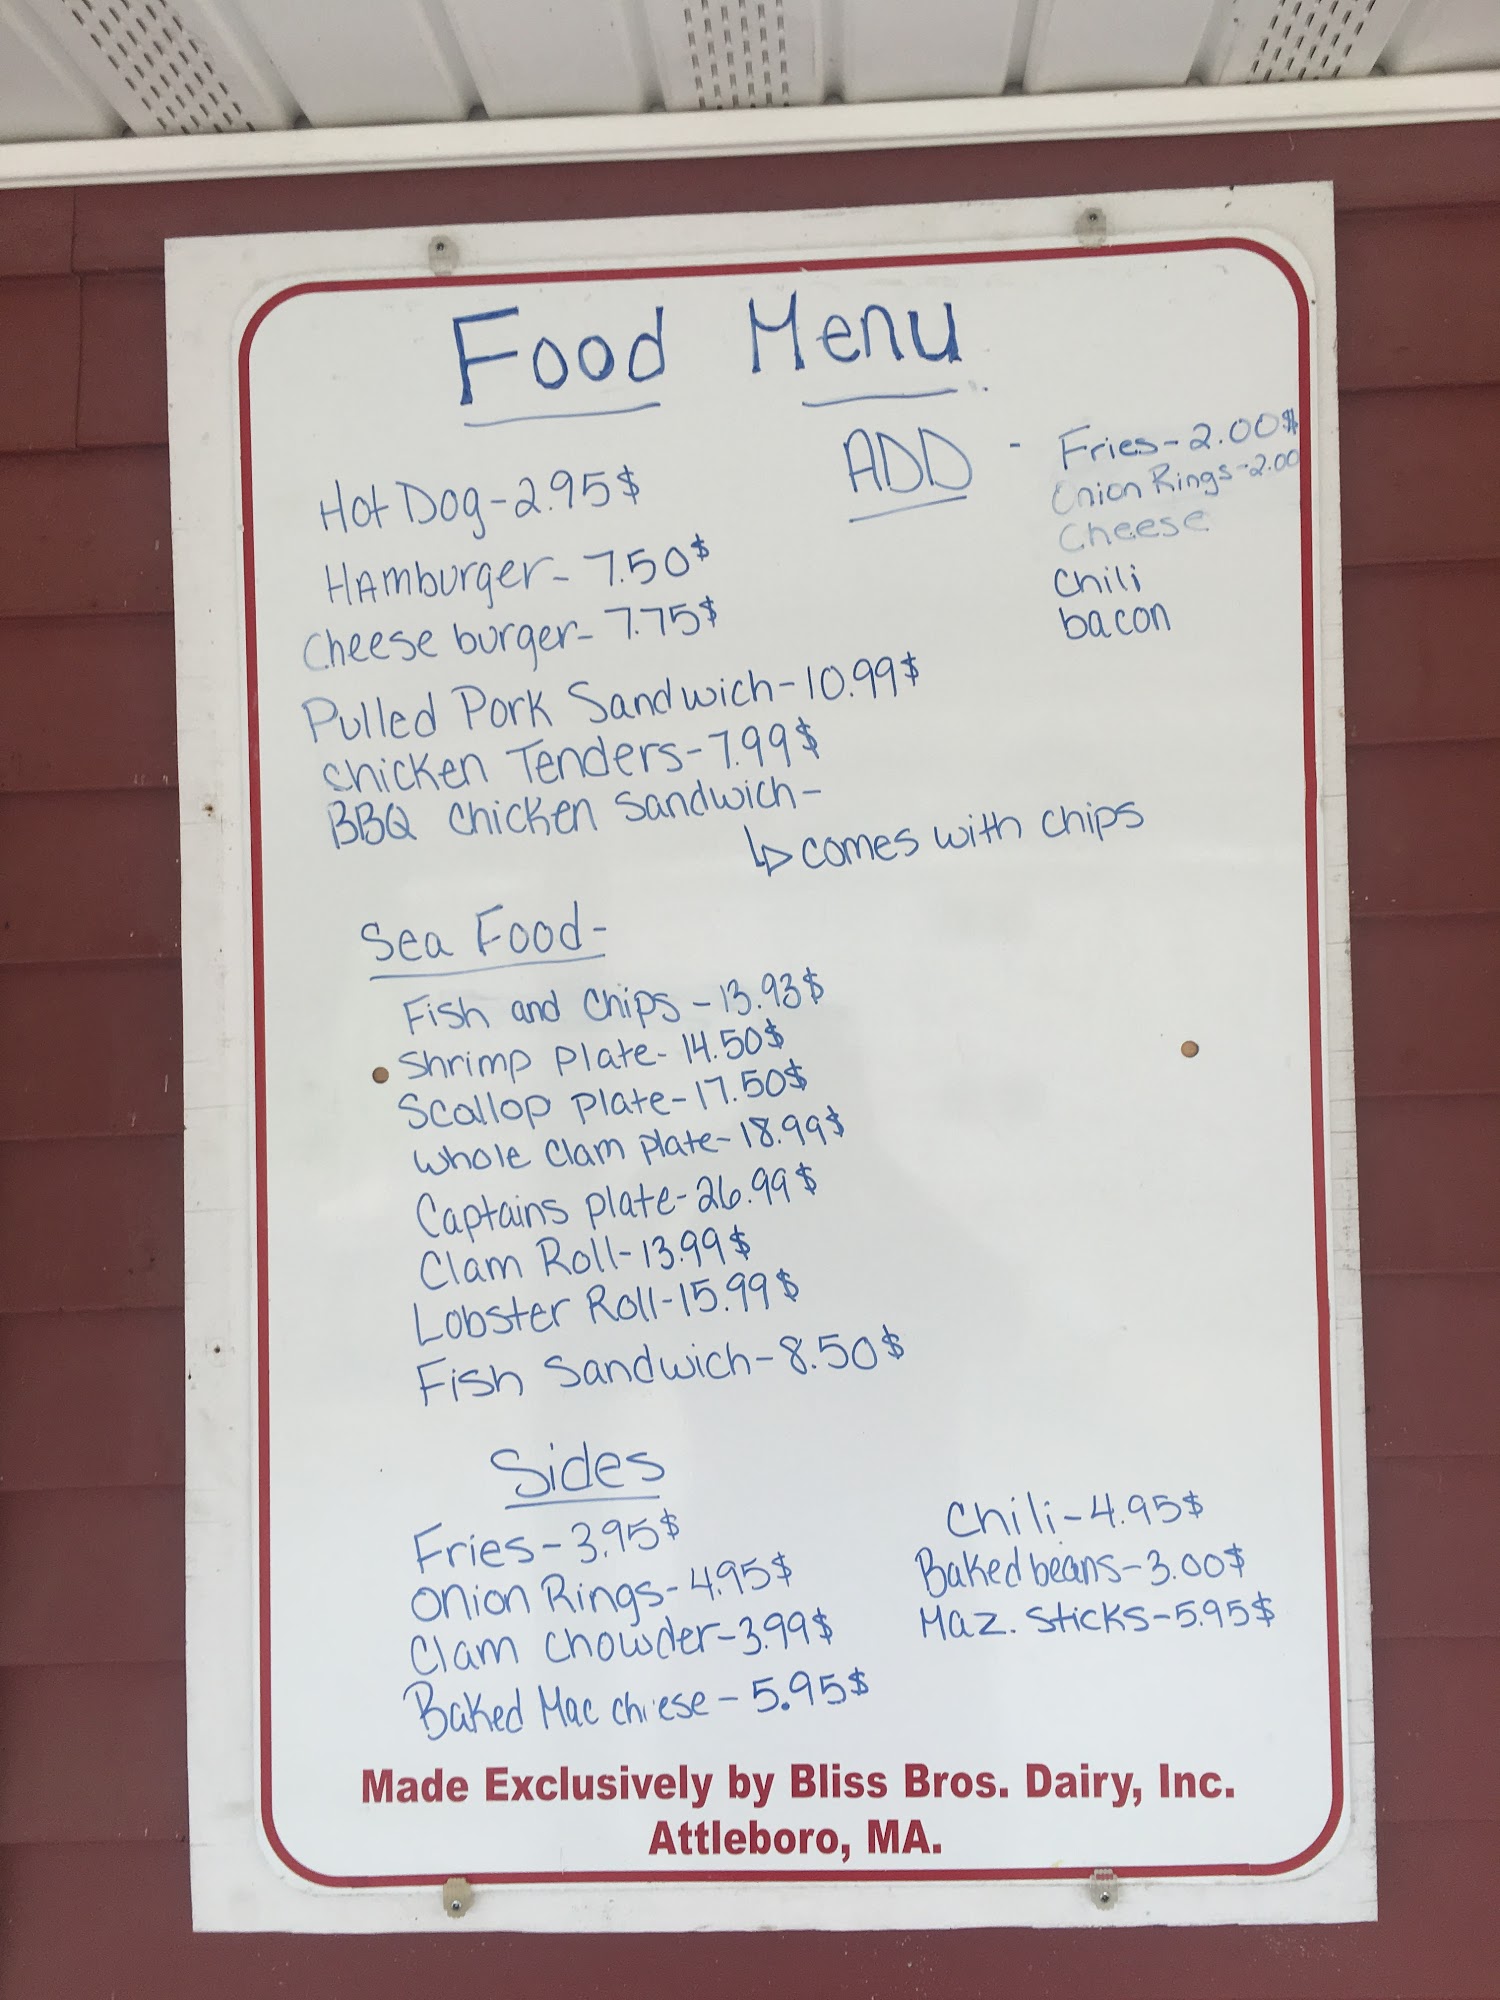 Food Menu
ADD - Fries-2.00$
Onion Rings-2.00
Cheese
Chili
bacon
Hot Dog-2.95$
Hamburger-7.50$
Cheese burger-7.75$
Pulled Pork Sandwich-10.99$
Chicken Tenders-7.99$
BBQ Chicken Sandwich-
↳ comes with chips
Sea Food-
Fish and Chips-13.93$
Shrimp Plate-14.50$
Scallop Plate-17.50$
Whole Clam plate-18.99$
Captains plate-26.99$
Clam Roll-13.99$
Lobster Roll-15.99$
Fish Sandwich-8.50$
Sides
Fries-3.95$
Onion Rings-4.95$
Clam Chowder-3.99$
Baked Mac cheese-5.95$
Chili-4.95$
Baked beans-3.00$
Maz. Sticks-5.95$
Made Exclusively by Bliss Bros. Dairy, Inc.
Attleboro, MA.